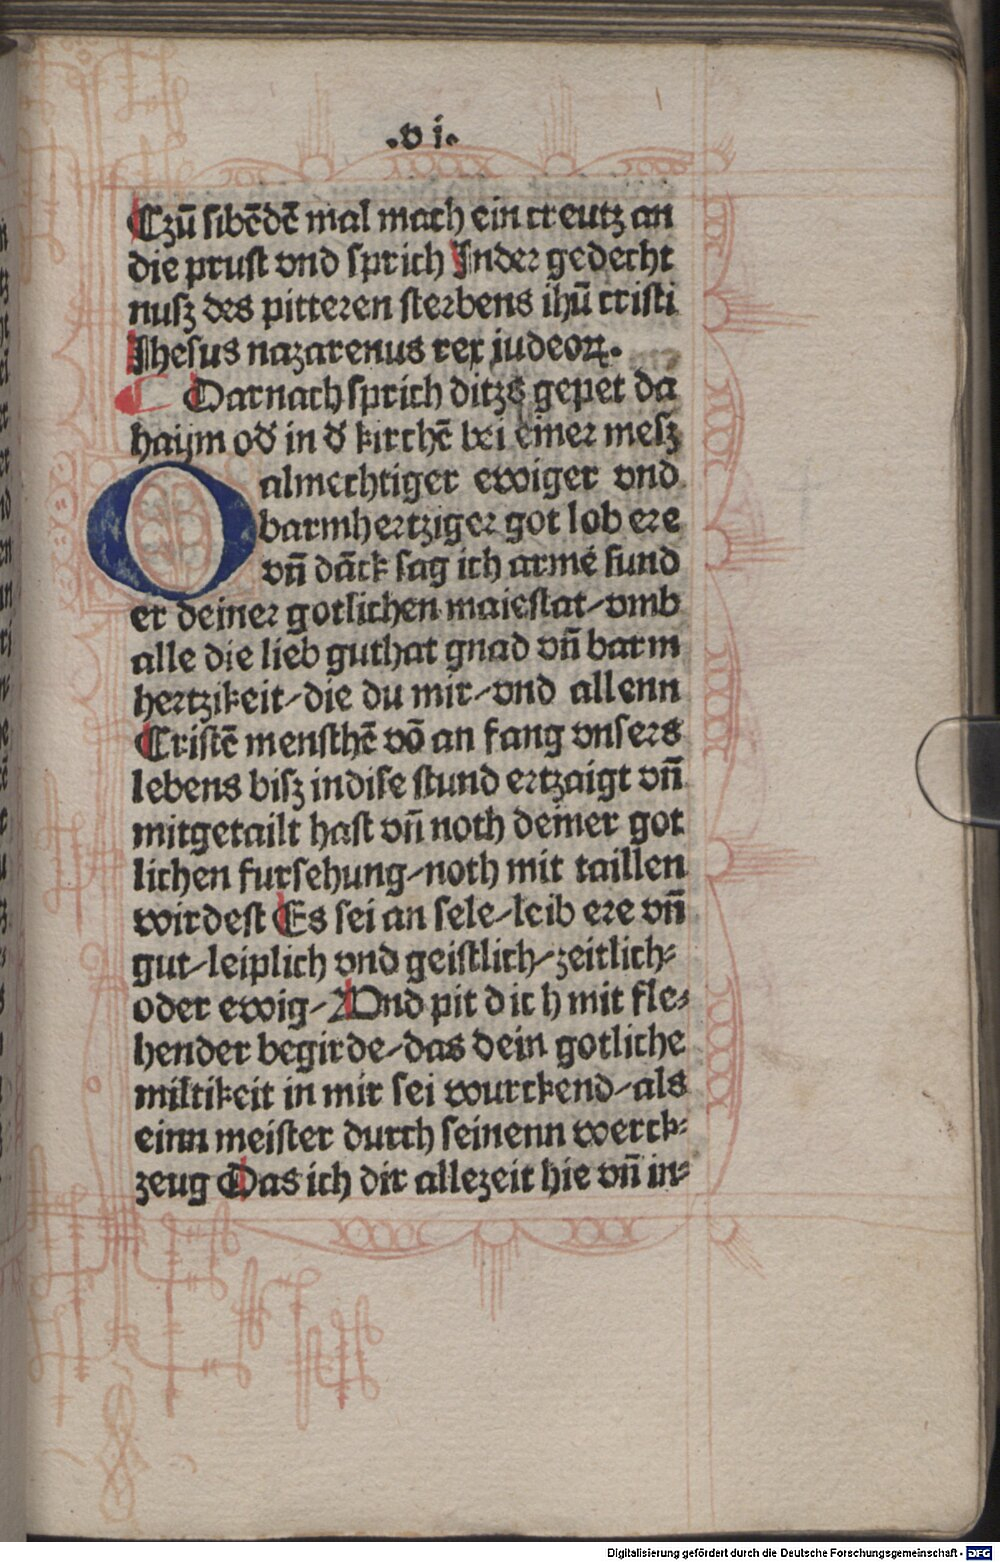 .v i.
Czū sibēdē mal mach ein creutz an
die prust vnd sprich Inder gedecht
nusz des pitteren sterbens ihū cristi
Ihesus nazarenus rex iudeoꝝ.
Darnach sprich ditzs gepet da
haym od̕ in d̕ kirchē bei einer mesz
O almechtiger ewiger vnd
barmhertziger got lob ere
vn̄ dāck sag ich armē sund
er deiner gotlichen maiestat/vmb
alle die lieb guthat gnad vn̄ barm
hertzikeit/die du mir/vnd allenn
Cristē menschē vō an fang vnsers
lebens bisz indise stund ertzaigt vn̄
mitgetailt hast vn̄ noch deiner got
lichen fursehung/noch mit taillen
wirdest Es sei an sele/leib ere vn̄
gut/leiplich vnd geistlich/zeitlich⸗
oder ewig/Vnd pit dich mit fle⸗
hender begirde/das dein gotliche
miltikeit in mir sei wurckend/als
einn meister durch seinenn werck⸗
zeug Das ich dir allezeit hie vn̄ in⸗
Digitalisierung gefördert durch die Deutsche Forschungsgemeinschaft - DFG